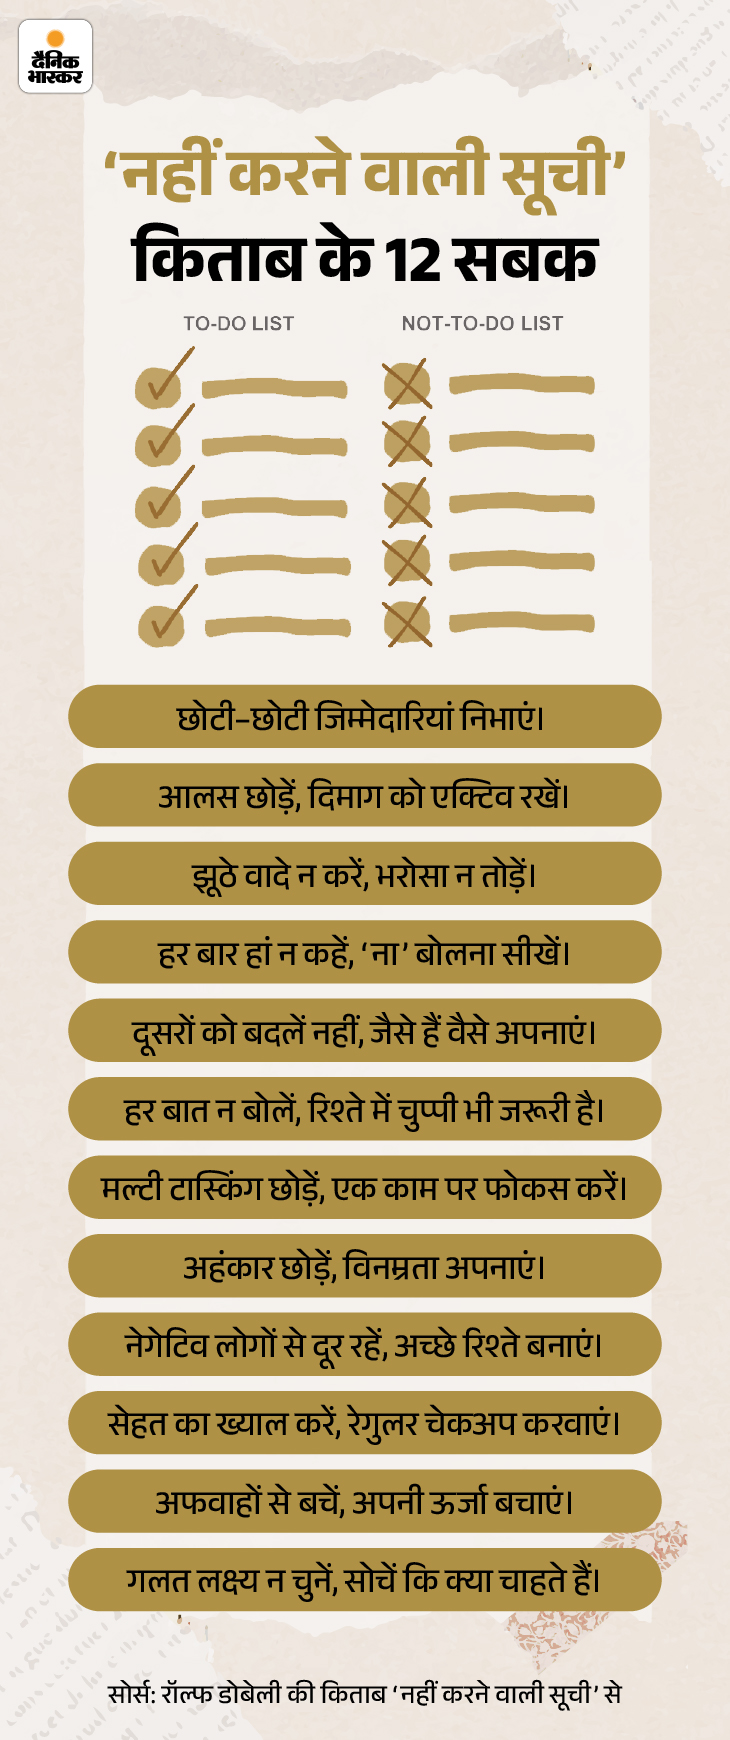 दैनिक
भास्कर
‘नहीं करने वाली सूची’
किताब के 12 सबक
TO-DO LIST
NOT-TO-DO LIST
छोटी–छोटी जिम्मेदारियां निभाएं।
आलस छोड़ें, दिमाग को एक्टिव रखें।
झूठे वादे न करें, भरोसा न तोड़ें।
हर बार हां न कहें, ‘ना’ बोलना सीखें।
दूसरों को बदलें नहीं, जैसे हैं वैसे अपनाएं।
हर बात न बोलें, रिश्ते में चुप्पी भी जरूरी है।
मल्टी टास्किंग छोड़ें, एक काम पर फोकस करें।
अहंकार छोड़ें, विनम्रता अपनाएं।
नेगेटिव लोगों से दूर रहें, अच्छे रिश्ते बनाएं।
सेहत का ख्याल करें, रेगुलर चेकअप करवाएं।
अफवाहों से बचें, अपनी ऊर्जा बचाएं।
गलत लक्ष्य न चुनें, सोचें कि क्या चाहते हैं।
सोर्स: रॉल्फ डोबेली की किताब ‘नहीं करने वाली सूची’ से